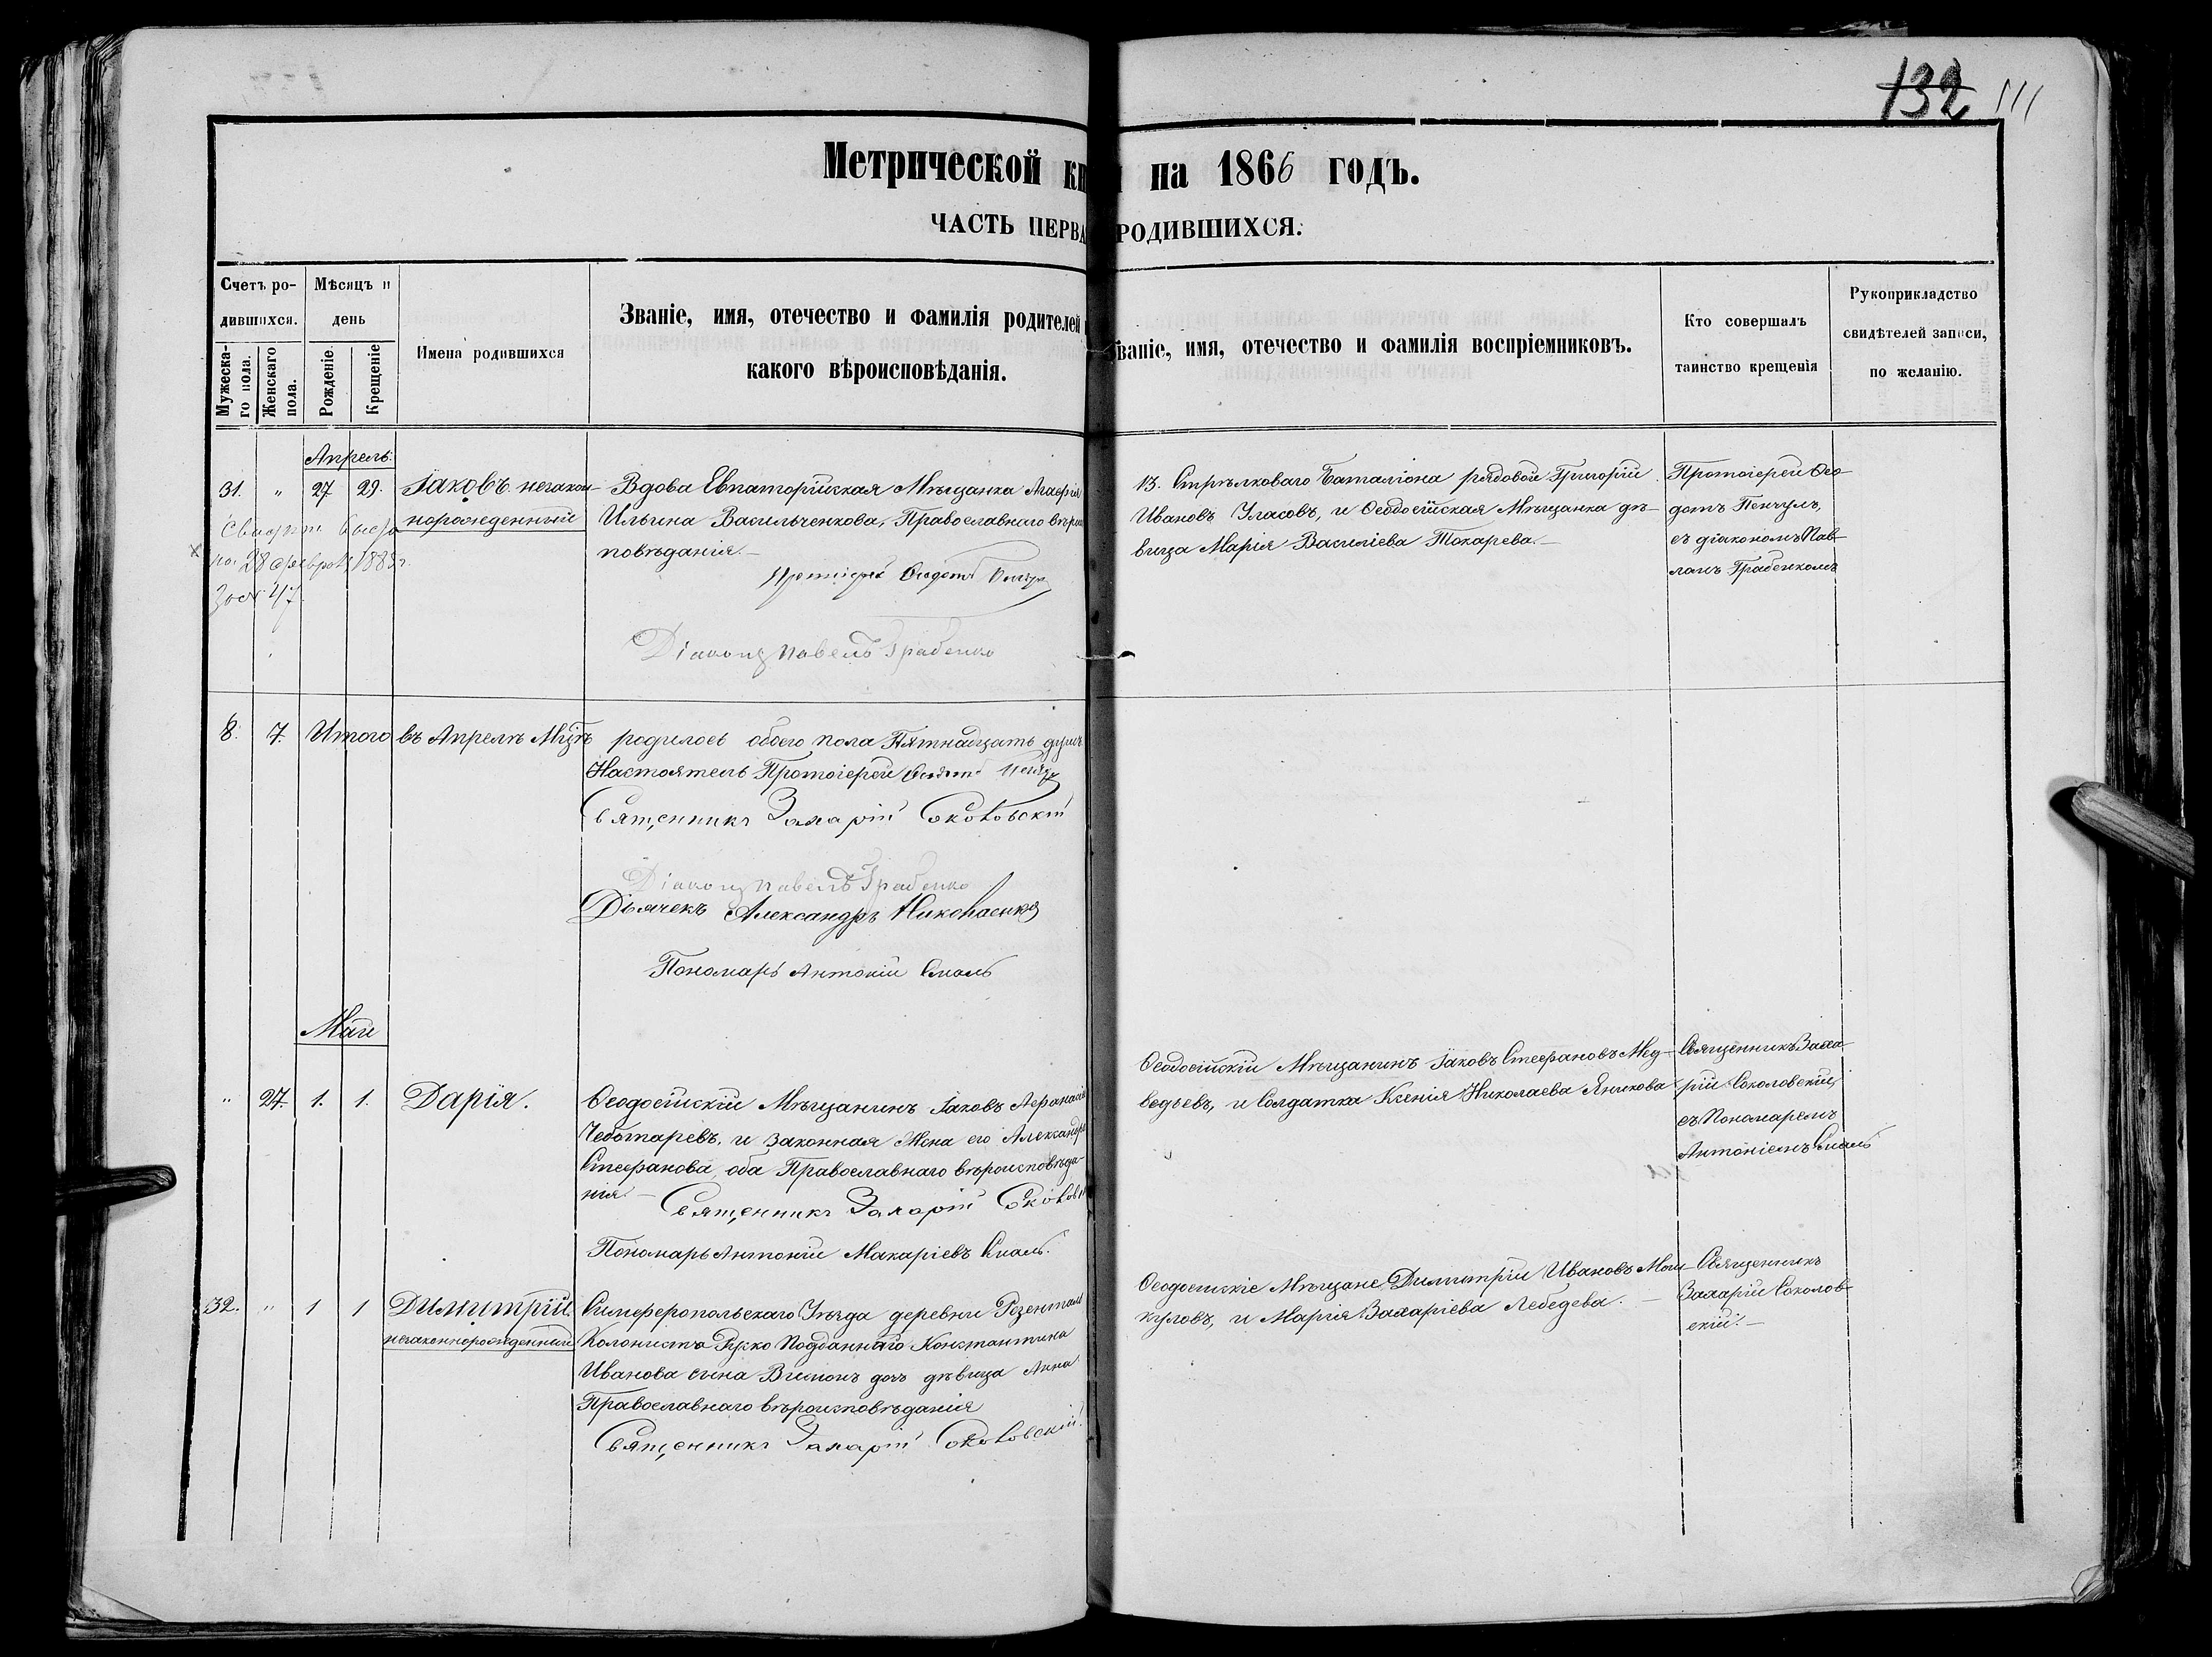 132 111
Метрической кн на 1866 годъ.
ЧАСТЬ ПЕРВА РОДИВШИХСЯ.
Счетъ ро-
дившихся.
Мужеска-
го пола.
Женскаго
пола.
Мѣсяцъ и
день
Рожденіе.
Крещеніе
Имена родившихся
Званіе, имя, отечество и фамилія родителей и
какого вѣроисповѣданія.
Званіе, имя, отечество и фамилія воспріемниковъ.
Кто совершалъ
таинство крещенія
Рукоприкладство
свидѣтелей записи,
по желанію.
Апрель.
31. " 27 29. Іаковъ незакон-
норожденный
28 февраля 1883 г.
47.
Вдова Евпаторійская Мѣщанка Агафія
Ильина Васильченкова, Православнаго вѣрис
повѣданія.—
Протоіерей Ѳеодотъ
Діаконъ Павелъ Грабенко
13. Стрѣлковаго Баталіона рядовой Григорій
Ивановъ Уласовъ, и Ѳеодосійская Мѣщанка дѣ-
вица Марія Василіева Токарева.—
Протоіерей Ѳео-
дотъ Пенчулъ,
съ діакономъ Пав-
ломъ Грабенкомъ
8. 7. Итого въ Апрелѣ Мцѣ родилось обоего пола Пятнадцать душъ
Настоятель Протоіерей Ѳеодотъ
Священникъ Захарій Соколовскій
Діаконъ Павелъ Грабенко
Дьячекъ Александръ Николаенко
Пономарь Антоній Смаль
Маи
" 27. 1. 1. Дарія.
Ѳеодосійскій Мѣщанинъ Іаковъ Аѳанасіе
Чеботаревъ, и законная Жена его Александра
Стефанова, оба Православнаго вѣроисповѣда-
нія.—
Священникъ Захарій Соколов
Пономарь Антоній Макаріевъ Смаль.
Ѳеодосійскій Мѣщанинъ Іаковъ Стефановъ Мед-
ведьевъ, и Солдатка Ксенія Николаева Яникова
Священникъ Заха-
рій Соколовскій,
съ Пономаремъ
Антоніемъ Смаль
32. " 1 1 Димитрій
незаконнорожденный
Симферопольскаго Уѣзда деревни Розенталь
Колониста Руско Подданнаго Константина
Иванова сына дочь дѣвица Анна
Православнаго вѣроисповѣданія
Священникъ Захарій Соколовскій.
Ѳеодосійскіе Мѣщане Димитрій Ивановъ
куловъ, и Марія Захаріева Лебедева.—
Священникъ
Захарій Соколов-
скій.—